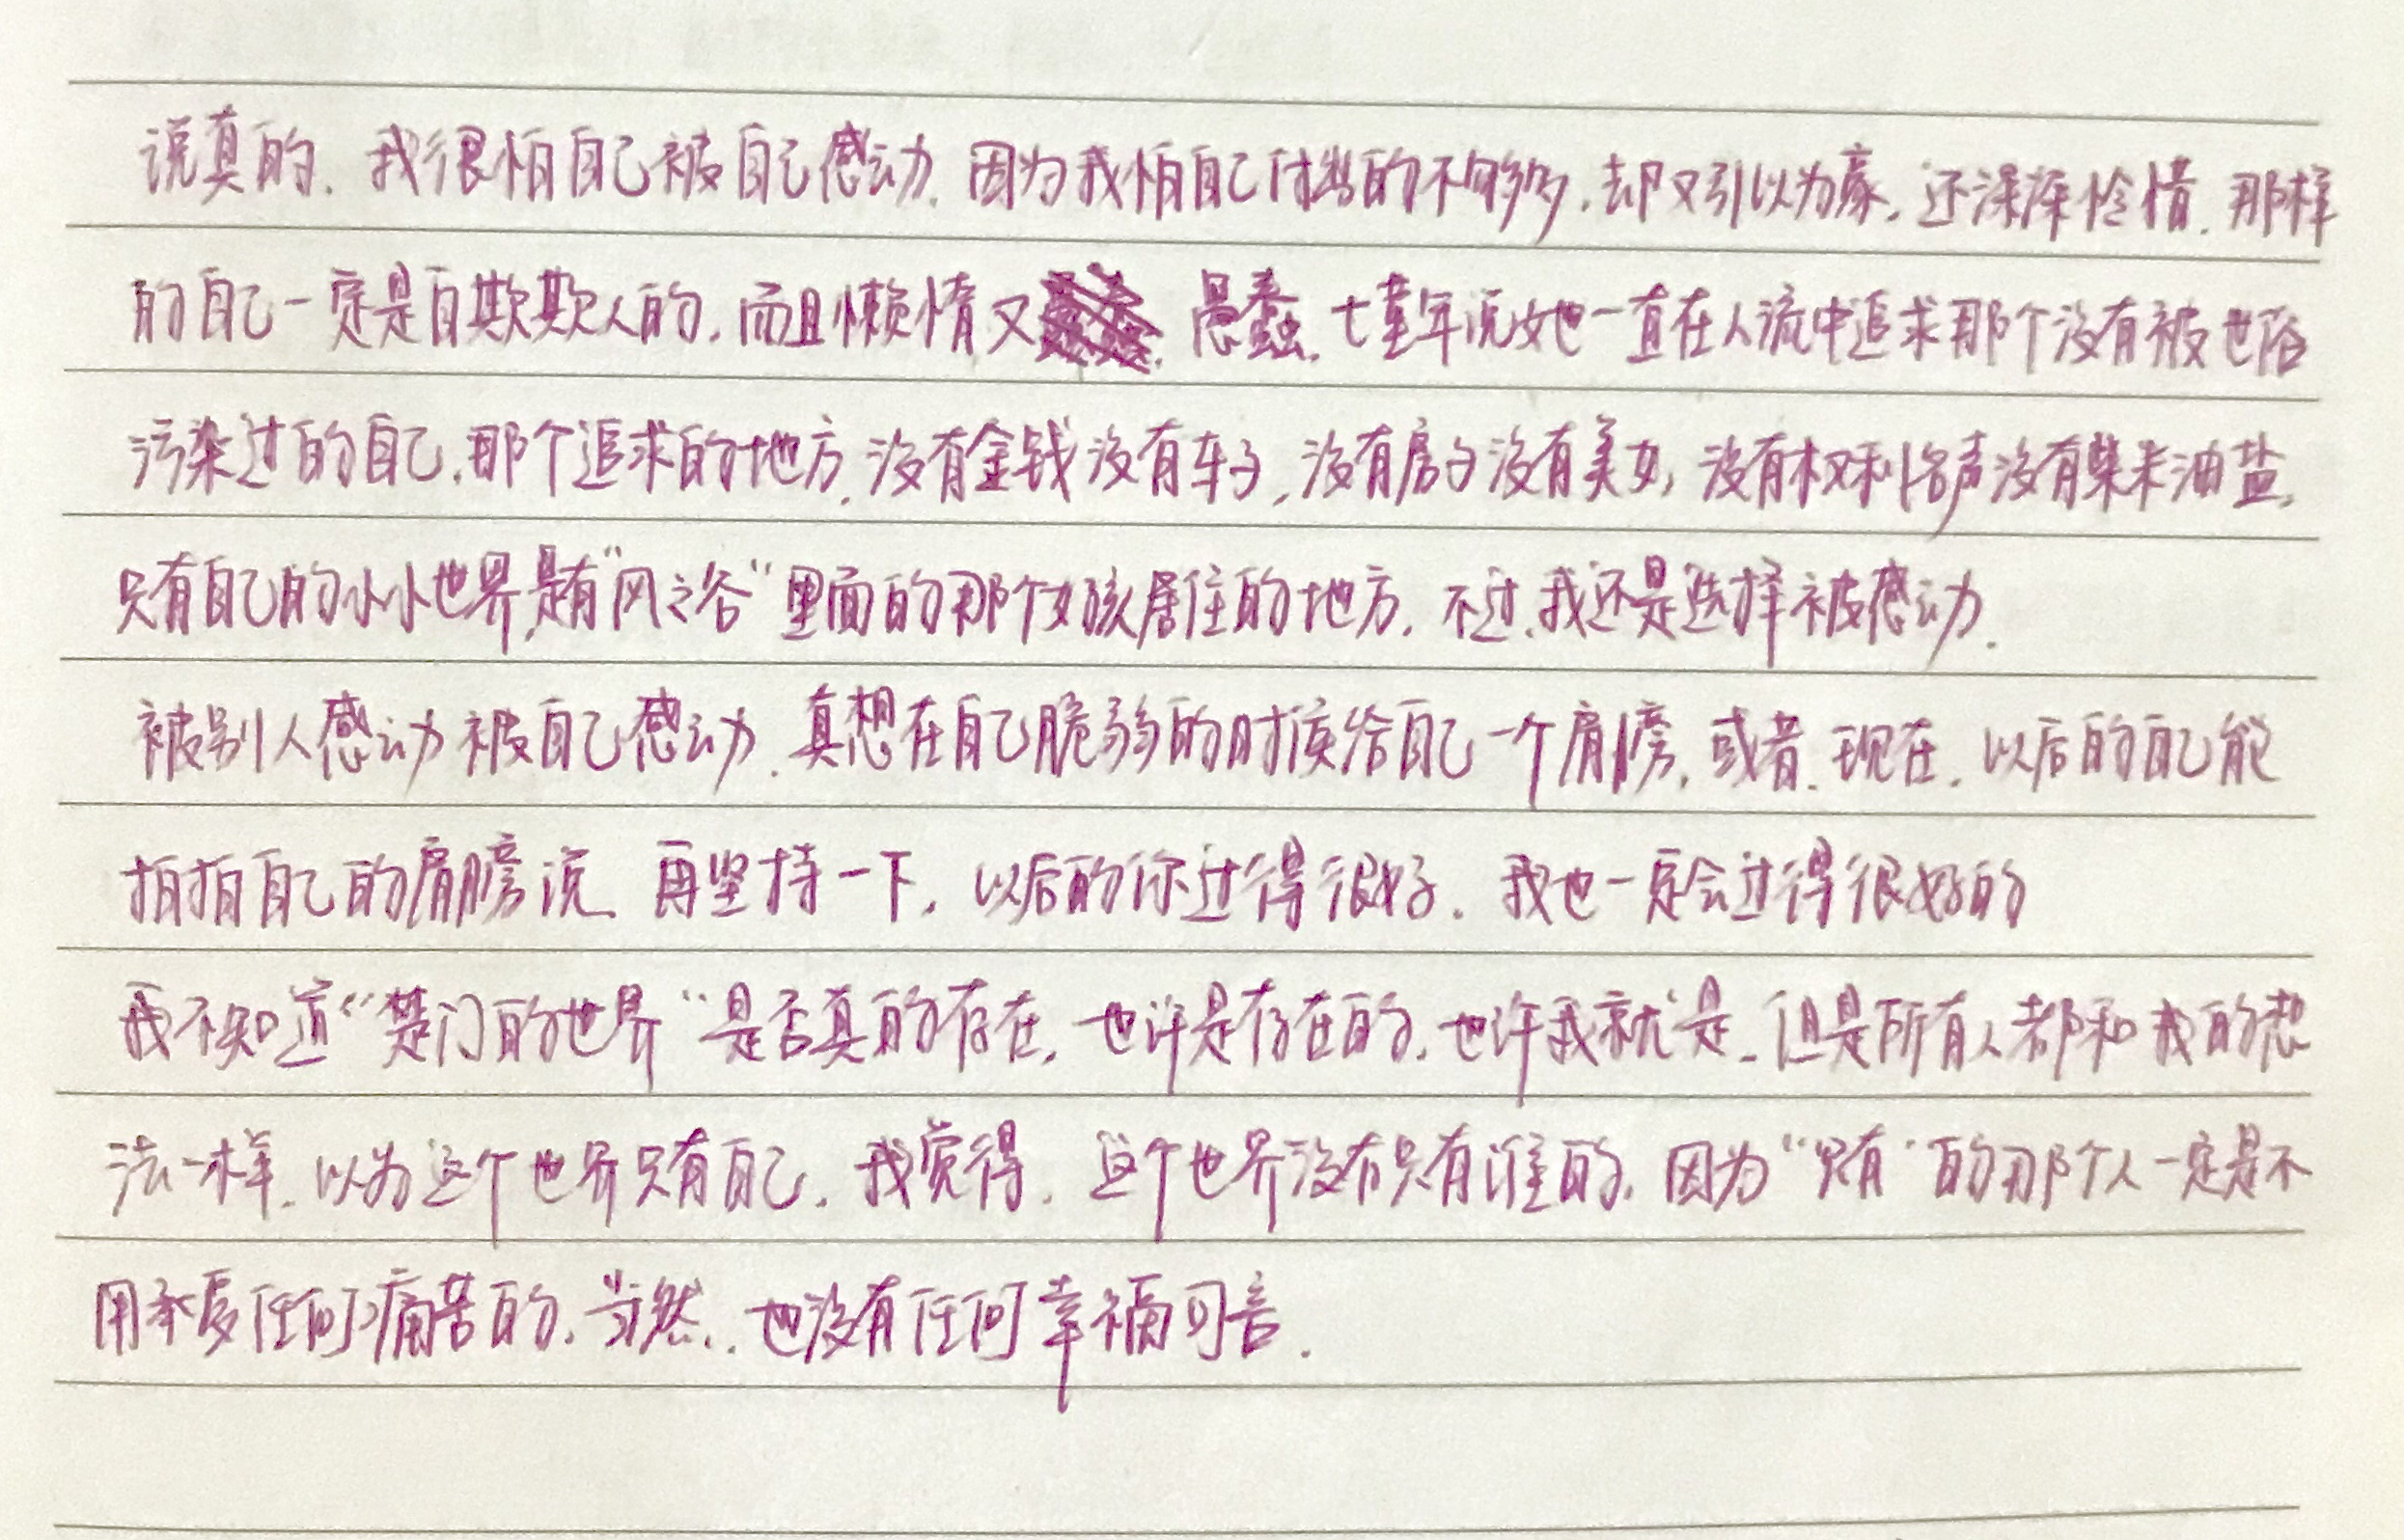 说真的.我很怕自己被自己感动.因为我怕自己付出的不够多.却又引以为豪.还深深怜惜.那样
的自己一定是自欺欺人的.而且懒惰又愚蠢.七堇年说她一直在人流中追求那个没有被世俗
污染过的自己.那个追求的地方.没有金钱没有车子,没有房子没有美女,没有权利俗声没有柴米油盐.
只有自己的小小世界,是有“风之谷“里面的那个女孩居住的地方.不过.我还是选择被感动.
被别人感动被自己感动.真想在自己脆弱的时候给自己一个肩膀.或者.现在.以后的自己能
拍拍自己的肩膀说.再坚持一下.以后的你过得很好.我也一定会过得很好的
我不知道“楚门的世界“是否真的存在.也许是存在的.也许我就是.但是所有人都和我的想
法一样.以为这个世界只有自己.我觉得.这个世界没有只有谁的.因为“只有“的那个人一定是不
用承受任何痛苦的.当然..也没有任何幸福可言.